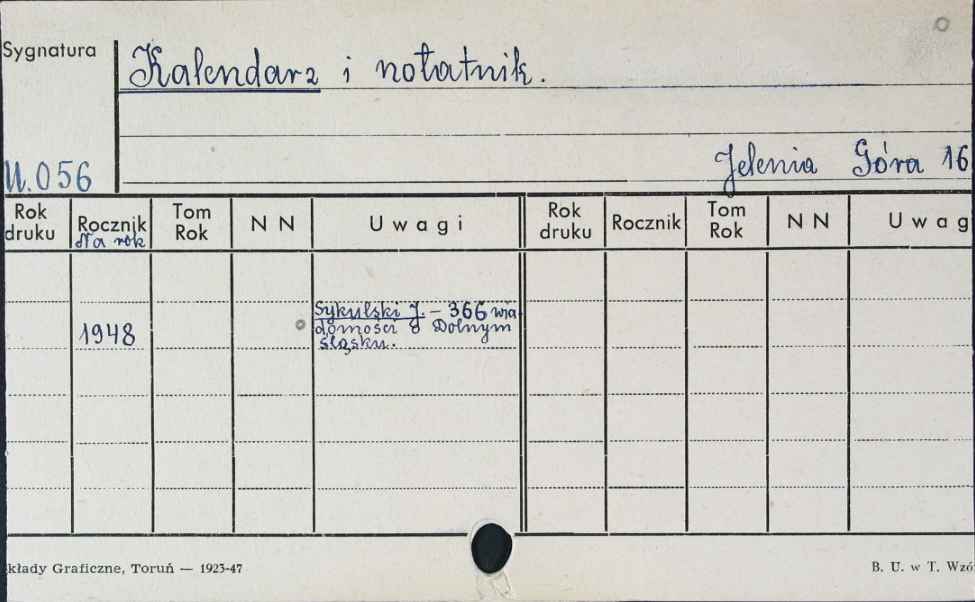 Sygnatura
Kalendarz i notatnik.
U.056
Jelenia Góra 16
Rok druku
Rocznik
dla rok
Tom Rok
N N
Uwagi
Rok druku
Rocznik
Tom Rok
N N
Uwag
1948
Sykulski J. – 366 wia
domości o Dolnym
Śląsku.
kłady Graficzne, Toruń — 1923-47
B. U. w T. Wzó